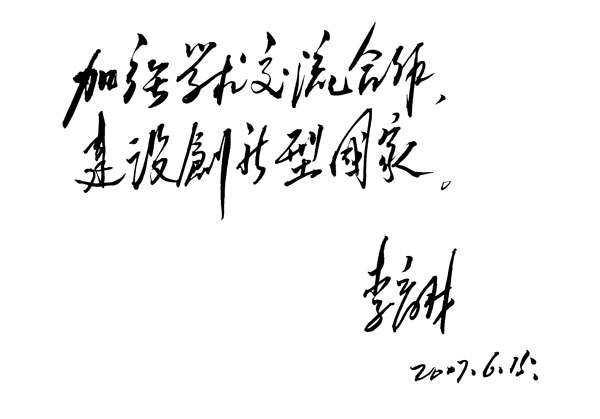 加强学术交流合作、
建设創新型國家。
李
2007.6.15.